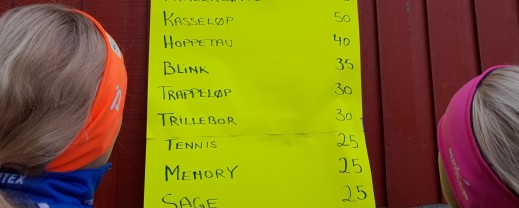 KASSELØP 50
HOPPETAU 40
BLINK 35
TRAPPELØP 30
TRILLEBOR 30
TENNIS 25
MEMORY 25
SAGE 25